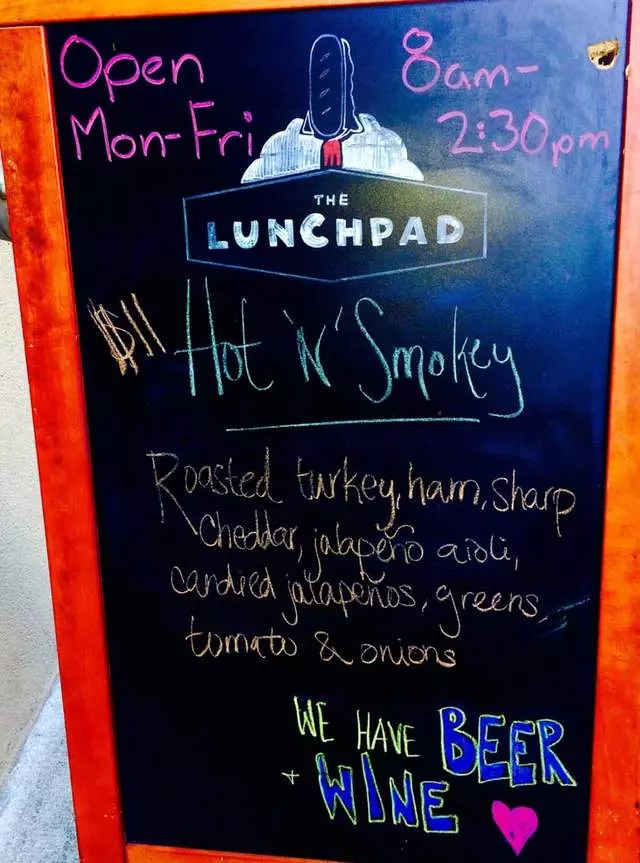 Open 8am-
Mon-Fri 2:30pm
THE
LUNCHPAD
$11 Hot 'N' Smokey
Roasted turkey, ham, sharp
cheddar, jalapeño aioli,
candied jalapeños, greens,
tomato & onions
WE HAVE BEER
+ WINE